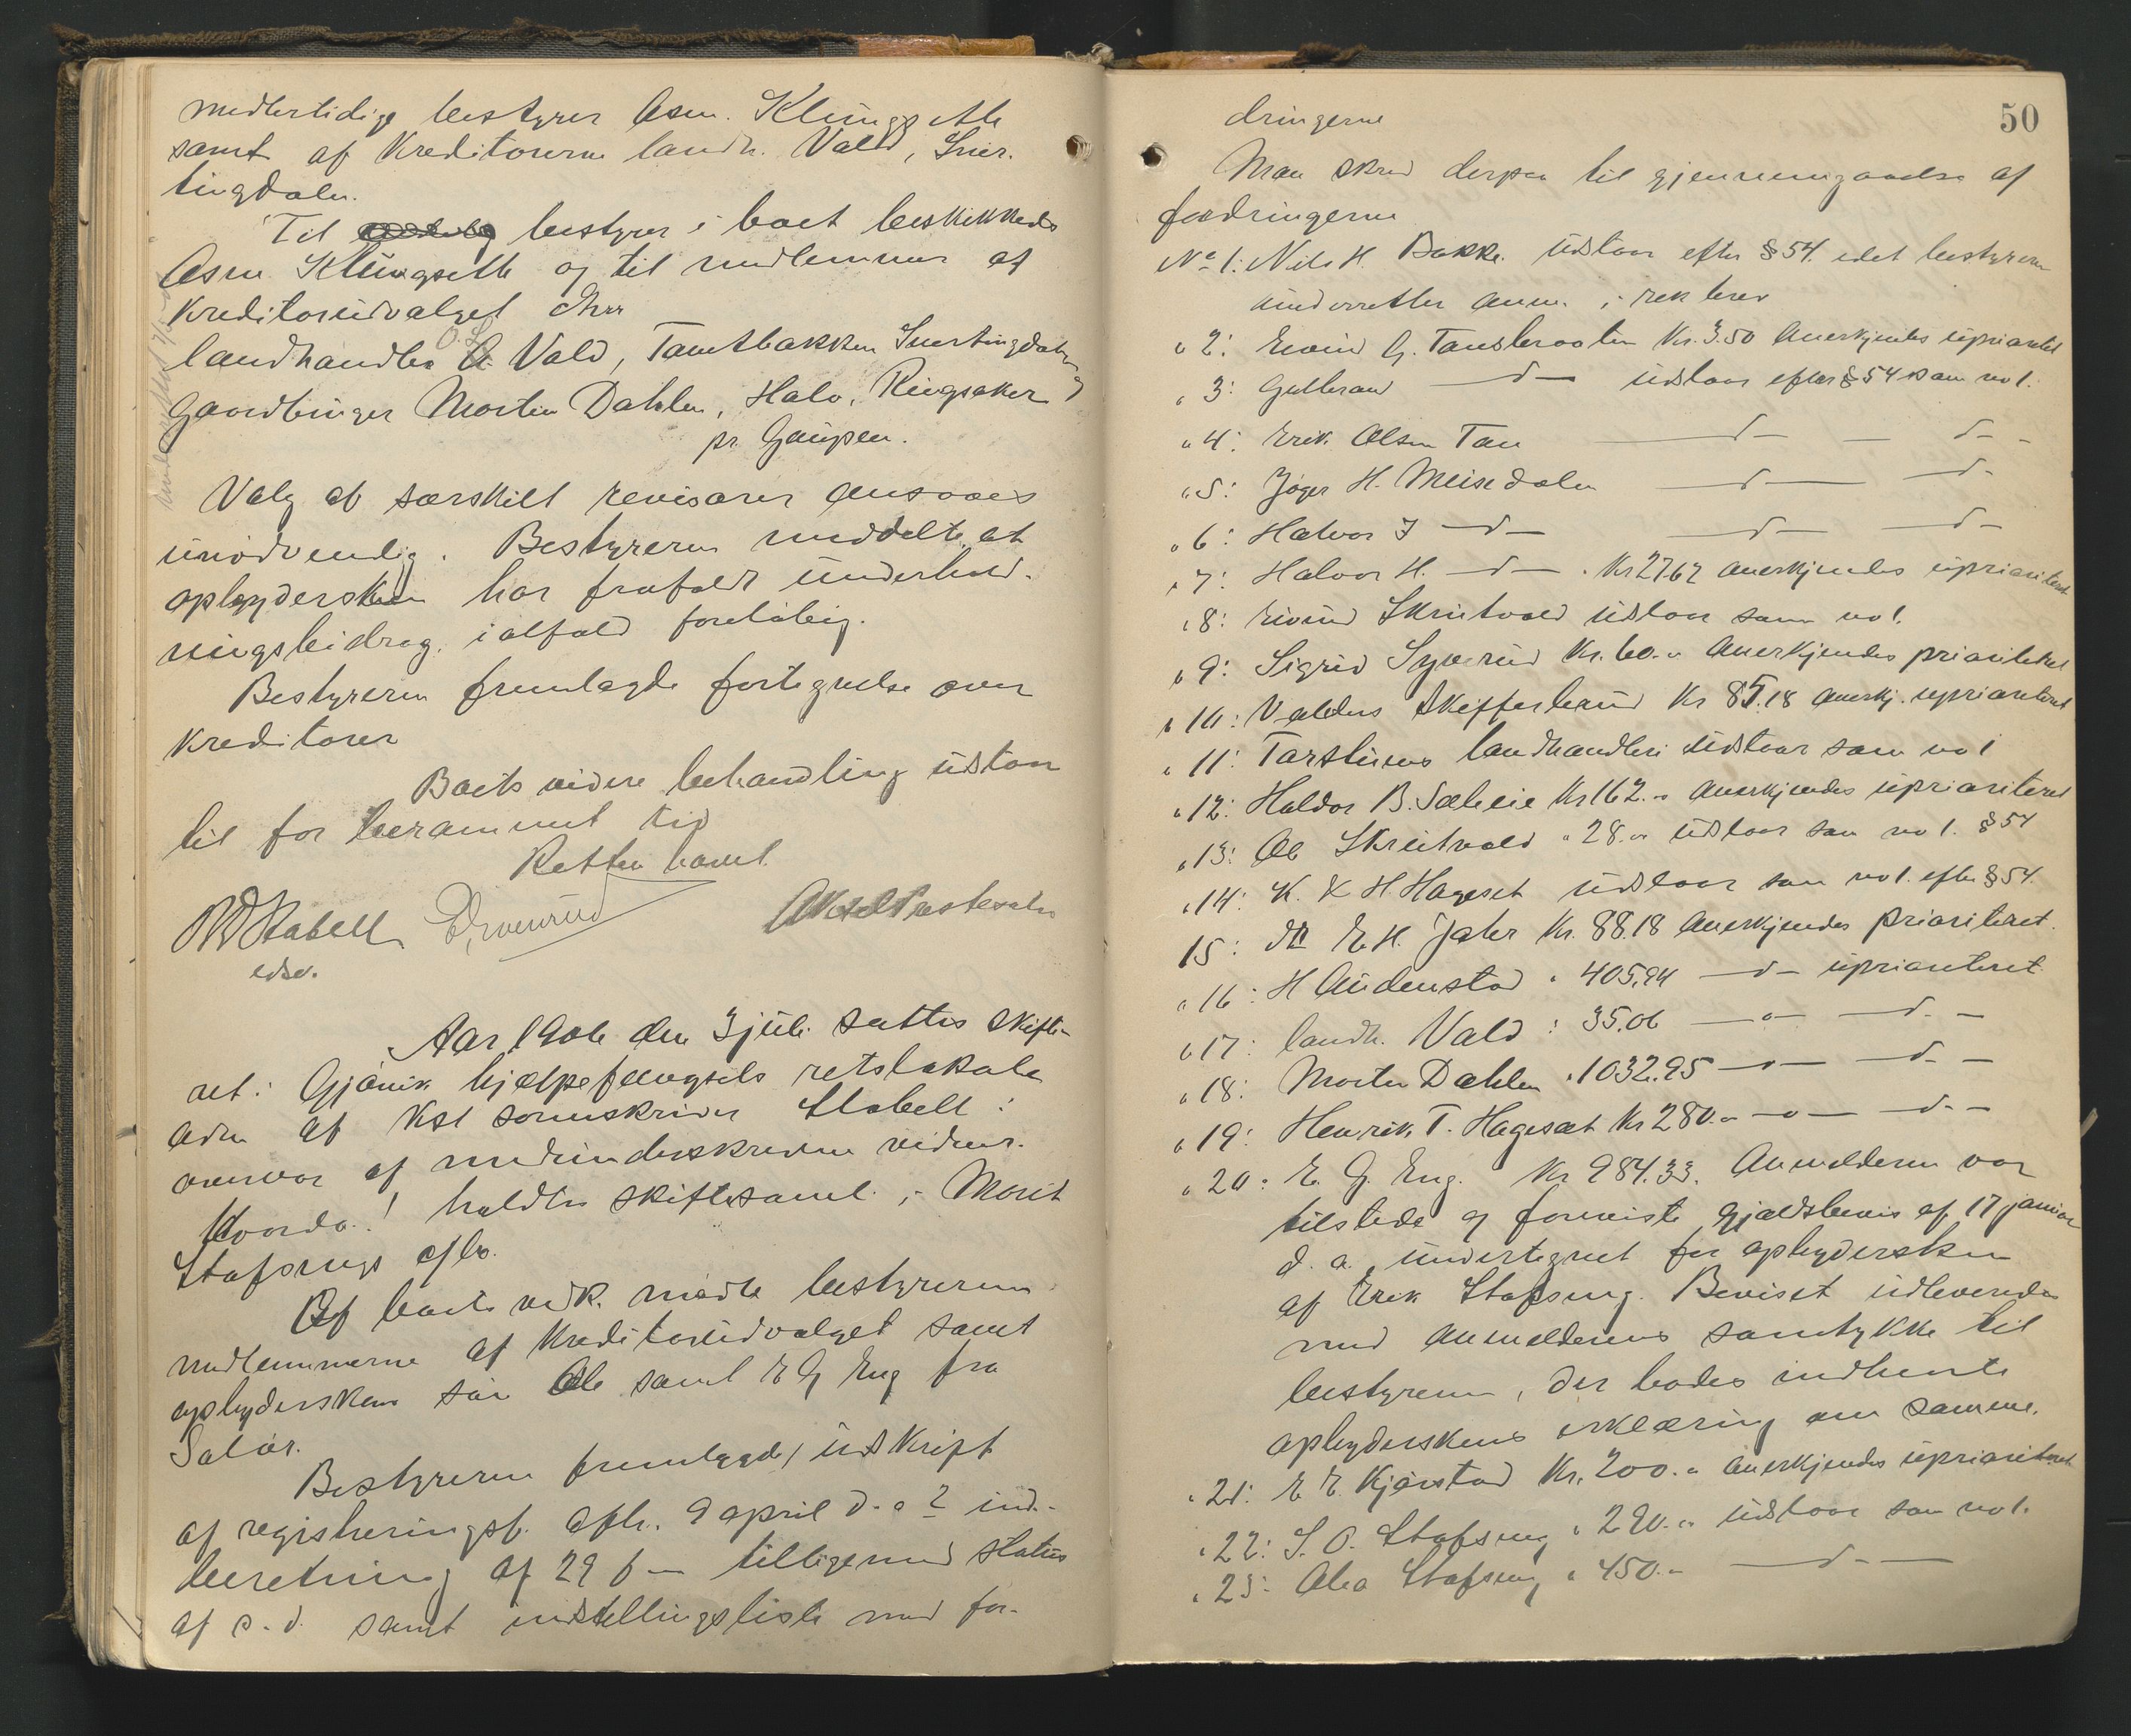 medlertidige bestyrer Asm. Klungseth
samt af Kreditorerne landh. Vald, Snær-
tingdalen.
Til bestyrer i boet beskikkedes
Asm Klüngseth og til medlemmer af
Kreditorüdvalget Hrr
landhandler O. L. Vald, Tamtbakken Snertingdalen og
Gaardbrüger Morten Dahlen, Halv. Ringsaker
pr. Gaüpen.
Valg af særskilt revisorer ansaaes
ünødvendig. Bestyreren meddelte at
opbydersken har frafaldt ünderhold-
ningsbidrag, ialfald foreløbig.
Bestyreren fremlagde fortegnelse over
Kreditorer
Boets videre behandling üdstaar
til for berammet tid
Retten hævet.
RWStabell
edsv.
Aar 1906 den 3 jüli sattes skifte-
ret i Gjøvik hjælpefængsels retslokale
adm af Kst sorenskriver Stabell i
overvær af medünderskrevne vidner.
Hvorda! holdtes skiftesaml. i Marit
Stafsengs
Af boets vedk. mødte bestyreren
medlemmerne af Kreditorüdvalget samt
opbyderskens søn Ole samt E G Eng fra
Solør.
Bestyreren fremlagde 1 üdskrift
af registreringsf. afh. 9 april d. a 2 ind-
beretning af 29 f.m tilligemed status
af s. d. samt indstillingsliste med for-
50
dringerne
Man skred derpaa til gjennemgaaelse af
fordringerne
No 1: Nils H. Bakke. üdstaar efter § 54. idet bestyreren
ünderretter anm. i rek brev
" 2: Eivind G. Tansbraaten Kr. 3.50 Anerkjendes üprioritet
" 3: Gulbrand —d— üdstaar efter § 54 som no 1.
" 4: Erik Olsen Tan —d— — d- -
" 5: Jøger H. Meisdalen —d— —d-
" 6: Halvor J —d— —d— —d-
" 7: Halvor H. —d— . Kr 27.62 anerkjendes üprioriteret
" 8: Eivind Skrütvold üdstaar som no 1.
" 9: Sigrid Syverüd Kr. 60.- Anerkjendes prioriteret
" 10: Valdres Skifferbrüd Kr 85.18 anerkj. üprioriteret
" 11: Torstüens landhandleri üdstaar som no 1
" 12: Haldor B. Sæheie Kr 162.- anerkjendes üprioriteret
" 13: Ole Skrütvold " 28.- üdstaar som no 1. § 54
" 14: K. & H Hageset üdstaar som no 1. efter § 54.
15: Dr E. H. Jahr Kr. 88.18 Anerkjendes prioriteret.
" 16: H Aüdenstad " 405,94 —d— üprioriteret
" 17: landh. Vald : 35.06 —d— —d.-
" 18: Morten Dahlen " 1032.95 —d— —d.-
" 19: Henrik T. Hageset Kr 280.- —d— —d.-
" 20: E. G. Eng. Kr 984.33. Anmelderen var
tilstede og foreviste gjældsbevis af 17 januar
d. a. ündertegnet for opbydersken
af Erik Stafseng. Beviset üdleveredes
med anmelderens samtykke til
bestyreren, der bades indhente
opbyderskens erklæring om samme.
" 21: E E. Kjørstad Kr. 200.- anerkjendes üprioriteret
" 22: S. O. Stafseng " 290.- üdstaar som no 1.
" 23: Olea Stafseng " 450.- —d.—